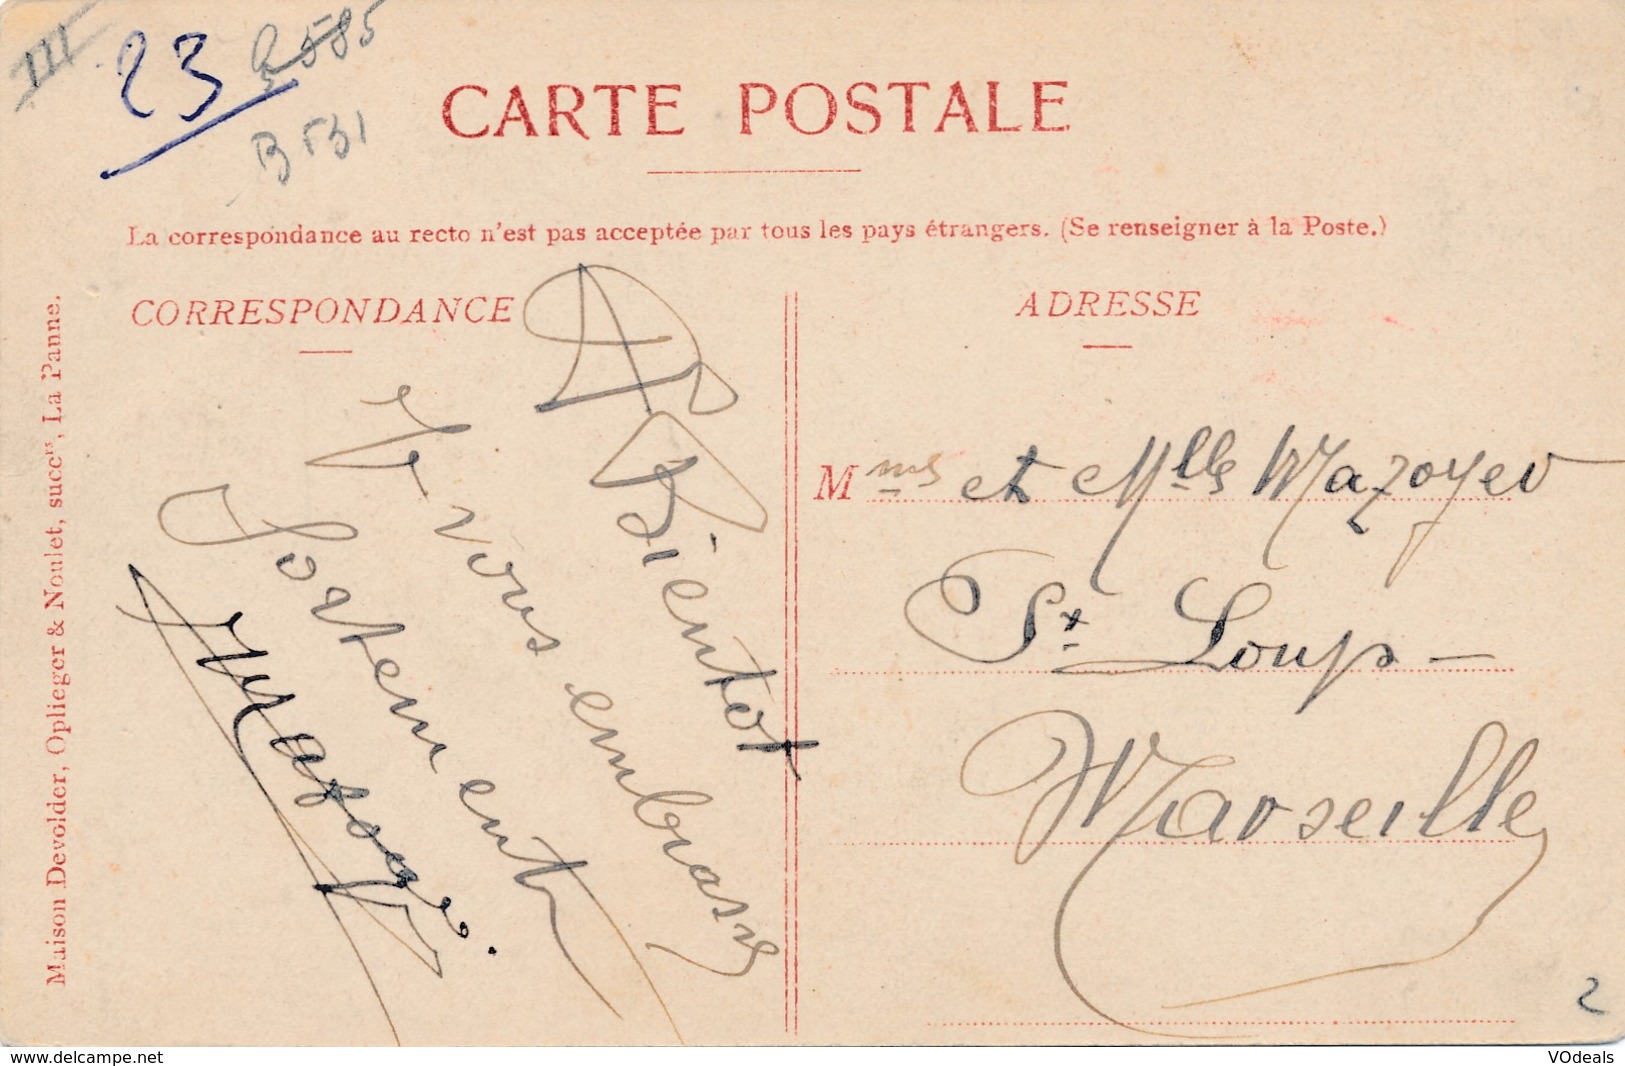 III
23
R 585
B 531
CARTE POSTALE
La correspondance au recto n'est pas acceptée par tous les pays étrangers. (Se renseigner à la Poste.)
CORRESPONDANCE
A Bientot
Je vous embrasse
fortement
Mazoyer.
ADRESSE
Mmes et Mlle Mazoyer
St. Loup –
Marseille
2
Maison Devolder, Oplieger & Noulet, succrs, La Panne.
www.delcampe.net
VOdeals